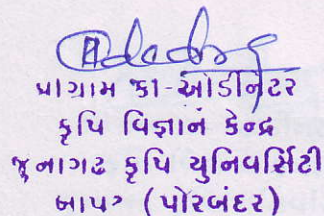 પ્રોગ્રામ કો-ઓર્ડીનેટર
કૃષિ વિજ્ઞાન કેન્દ્ર
જુનાગઢ કૃષિ યુનિવર્સિટી
ખાપટ (પોરબંદર)